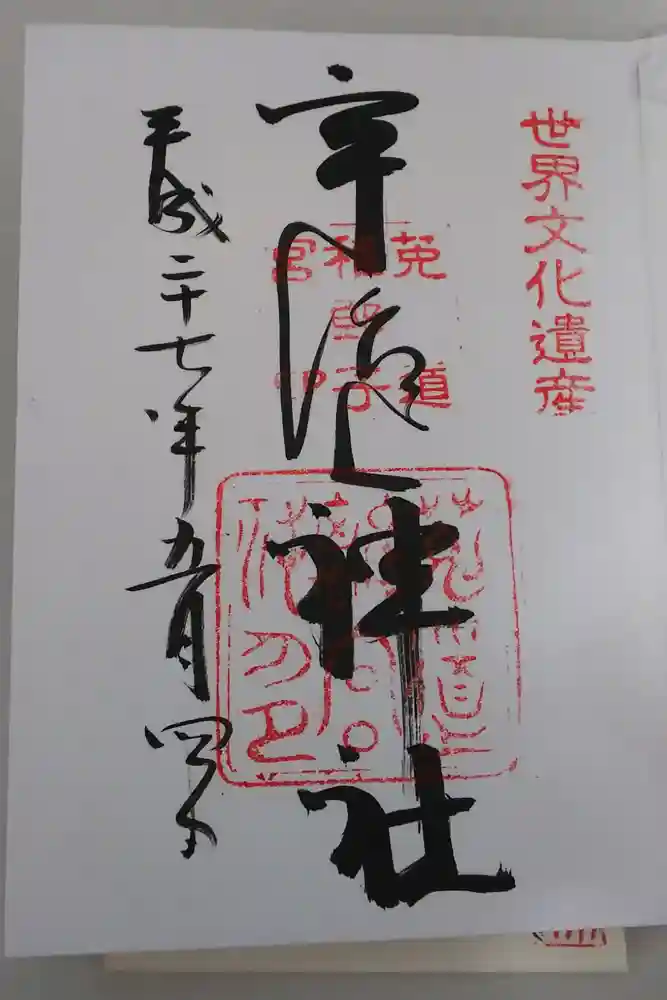 世界文化遺産
宇治神社
菟道
稚郎子
宮印
平成二十七年五月四日